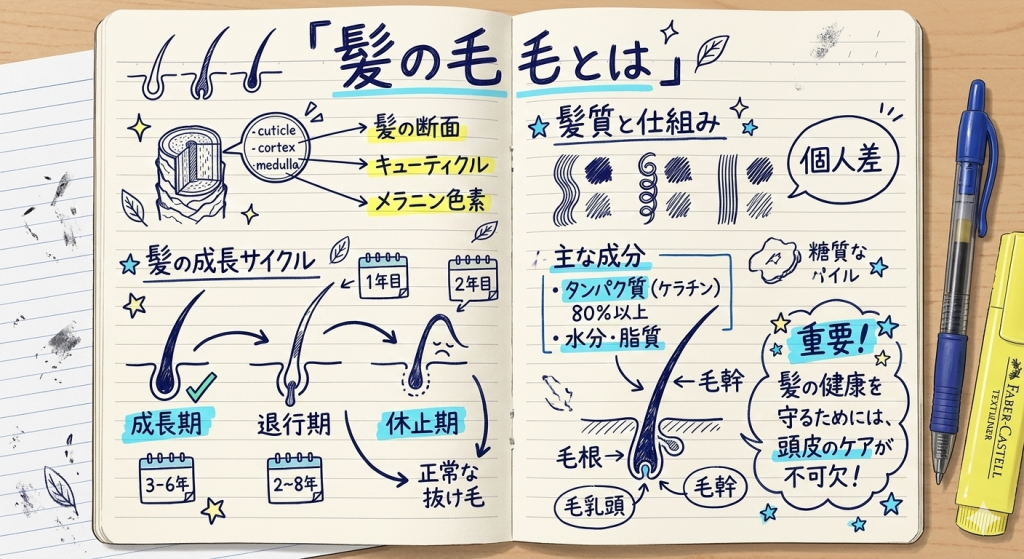 「髪の毛 毛とは」
- cuticle
- cortex
- medulla
髪の断面
キューティクル
メラニン色素
髪の成長サイクル
1年目
2年目
成長期
退行期
休止期
3-6年
2~8年
正常な
抜け毛
髪質と仕組み
個人差
主な成分
・タンパク質(ケラチン)
80%以上
・水分・脂質
糖質な
パイル
毛幹
毛根
毛乳頭
毛幹
重要!
髪の健康を
守るためには、
頭皮のケアが
不可欠!
FABER-CASTELL
TEXTLINER